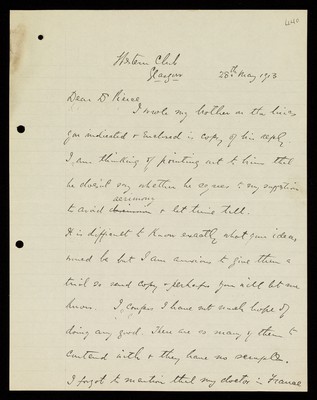 440
Western Club
Glasgow
28th May 1913
Dear Dr Pierce
I wrote my brother on the lines
you indicated & enclosed is copy of his reply
I am thinking of pointing out to him that
he doesn't say whether he agrees to my suggestion
acrimony
to avoid & let time tell.
It is difficult to know exactly what your ideas
would be but I am anxious to give them a
trial so send copy & perhaps you will let me
know. I confess I have not much hope of
doing any good. There are so many of them to
contend with & they have no scruples.
I forgot to mention that my doctor in France